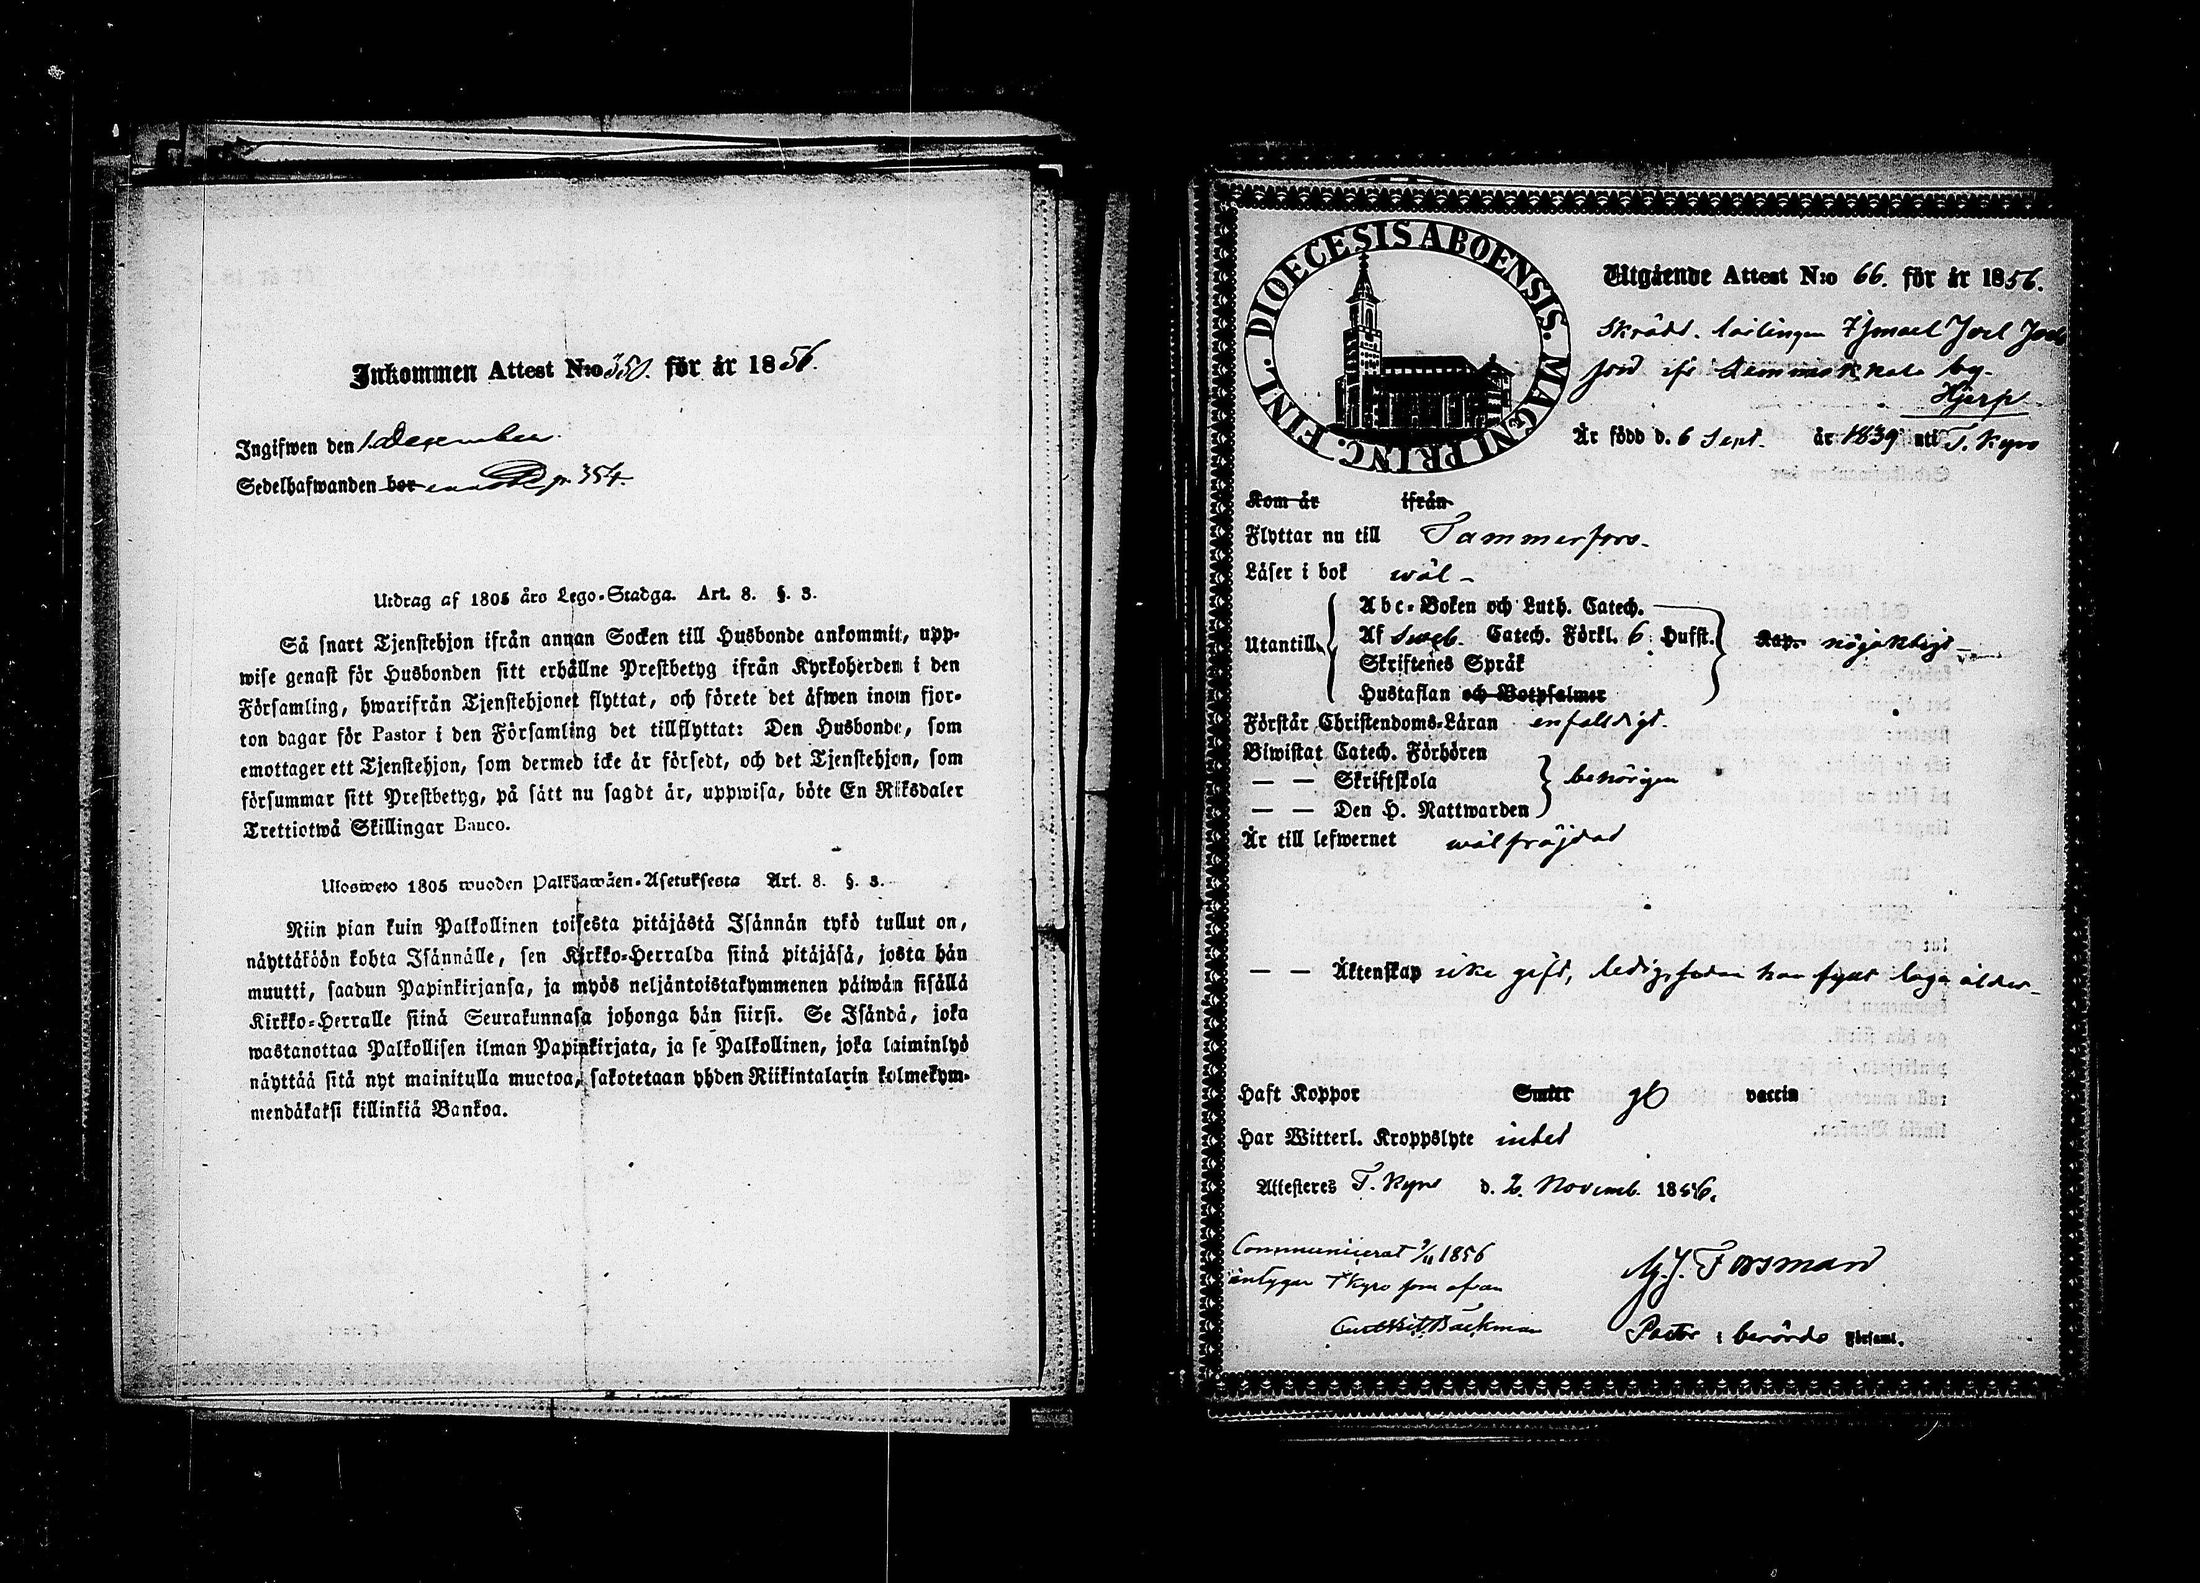 Inkommen Attest N:o 350. för år 1856.
Ingifwen den 1 December
Sedelhafwanden bor
354.
Utdrag af 1805 års Lego-Stadga. Art. 8. §. 3.
Så snart Tjenstehjon ifrån annan Socken till Husbonde ankommit, upp-
wise genast för Husbonden sitt erhållne Prestbetyg ifrån Kyrkoherden i den
Församling, hwarifrån Tjenstehjonet flyttat, och förete det äfwen inom fjor-
ton dagar för Pastor i den Församling det tillflyttat: Den Husbonde, som
emottager ett Tjenstehjon, som dermed icke är försedt, och det Tjenstehjon, som
försummar sitt Prestbetyg, på sätt nu sagdt är, uppwisa, böte En Riksdaler
Trettiotwå Skillingar Banco.
Ulosweto 1805 wuoden Palkkawäen-Asetuksesta Art. 8. §. 3.
Niin pian kuin Palkollinen toisesta pitäjästä Isännän tykö tullut on,
näyttäköön kohta Isännälle, sen Kirkko-Herralda siinä pitäjäsä, josta hän
muutti, saadun Papinkirjansa, ja myös neljäntoistakymmenen päiwän sisällä
Kirkko-Herralle siinä Seurakunnasa johonga hän siirsi. Se Isändä, joka
wastanottaa Palkollisen ilman Papinkirjata, ja se Palkollinen, joka laiminlyö
näyttää sitä nyt mainitulla muotoa, sakotetaan yhden Riikintalarin kolmekym-
mendäkaksi killinkiä Bankoa.
DIOECESIS ABOENSIS. MAGNI PRINC. FINL.
Utgående Attest N:o 66. för år 1856.
Skrädd. lärlingen Ismael Joel Joel
son ifr by.
Hjerp
Är född d. 6 Sept. år 1839 uti T. Kyro
Kom år ifrån
Flyttar nu till Tammerfors.
Läser i bok wäl
Utantill Abc-Boken och Luth. Catech.
Af Sveb. Catech. Förkl. 6 Hufst. Kap. nöjaktigt
Skriftenes Språk
Hustaflan och Botpsalmer
Förstår Christendoms-Läran enfaldigt.
Biwistat Catech. Förhören
— — Skriftskola behörigen
— — Den H. Nattwarden
Är till lefwernet wälfräjdad
— — Äktenskap icke gift, har fyllt laga ålder
Haft Koppor Smitt vaccin
Har Witterl. Kroppslyte intet
Attesteres T. Kyro d. 2. Novemb. 1856.
Communicerat 9/11 1856
intygar T Kyro som ofvan
Bäckman
M. J. Forsman
Pastor i berörde Församl.